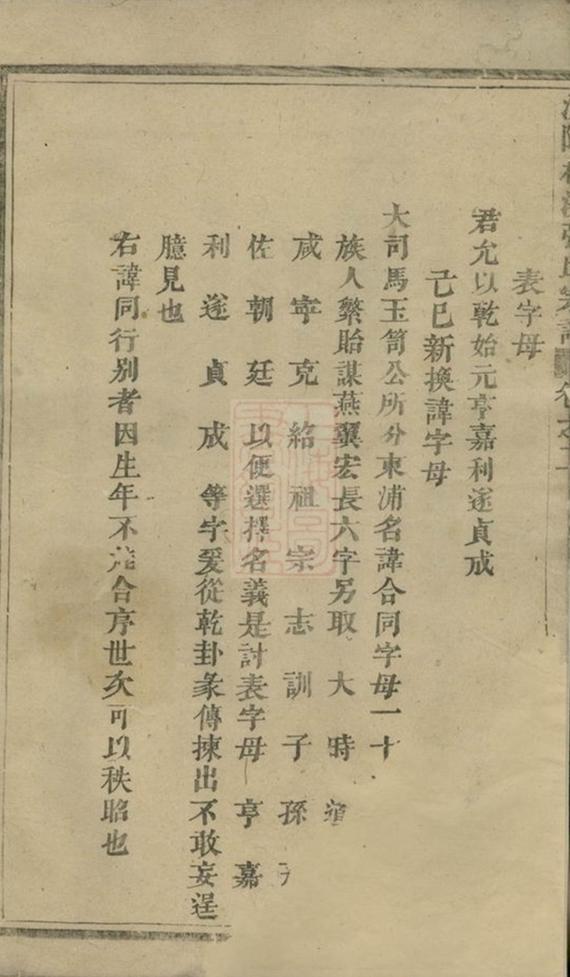 表字母
君允以乾始元亨嘉利遂貞成
己巳新換諱字母
大司馬玉笥公所分東浦名諱合同字母一十
族人繁貽謀燕翼宏長六字另取大時
咸寧克紹祖宗志訓子孫
佐朝廷以便選擇名義是討表字母亨嘉
利遂貞成等字爰從乾卦彖傳揀出不敢妄逞
臆見也
右諱同行別者因生年不能合序世次可以秩昭也